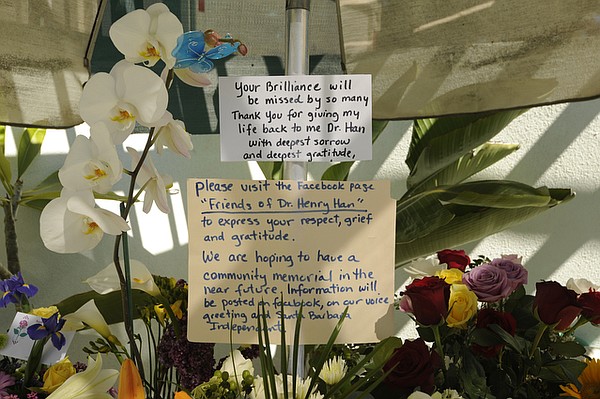 Your Brilliance will
be missed by so many
Thank you for giving my
life back to me Dr. Han
with deepest sorrow
and deepest gratitude,
please visit the Facebook page
"Friends of Dr. Henry Han"
to express your respect, grief
and gratitude.
We are hoping to have a
community memorial in the
near future. Information will
be posted on facbook, on our voice
greeting and Santa Barbara
Independent